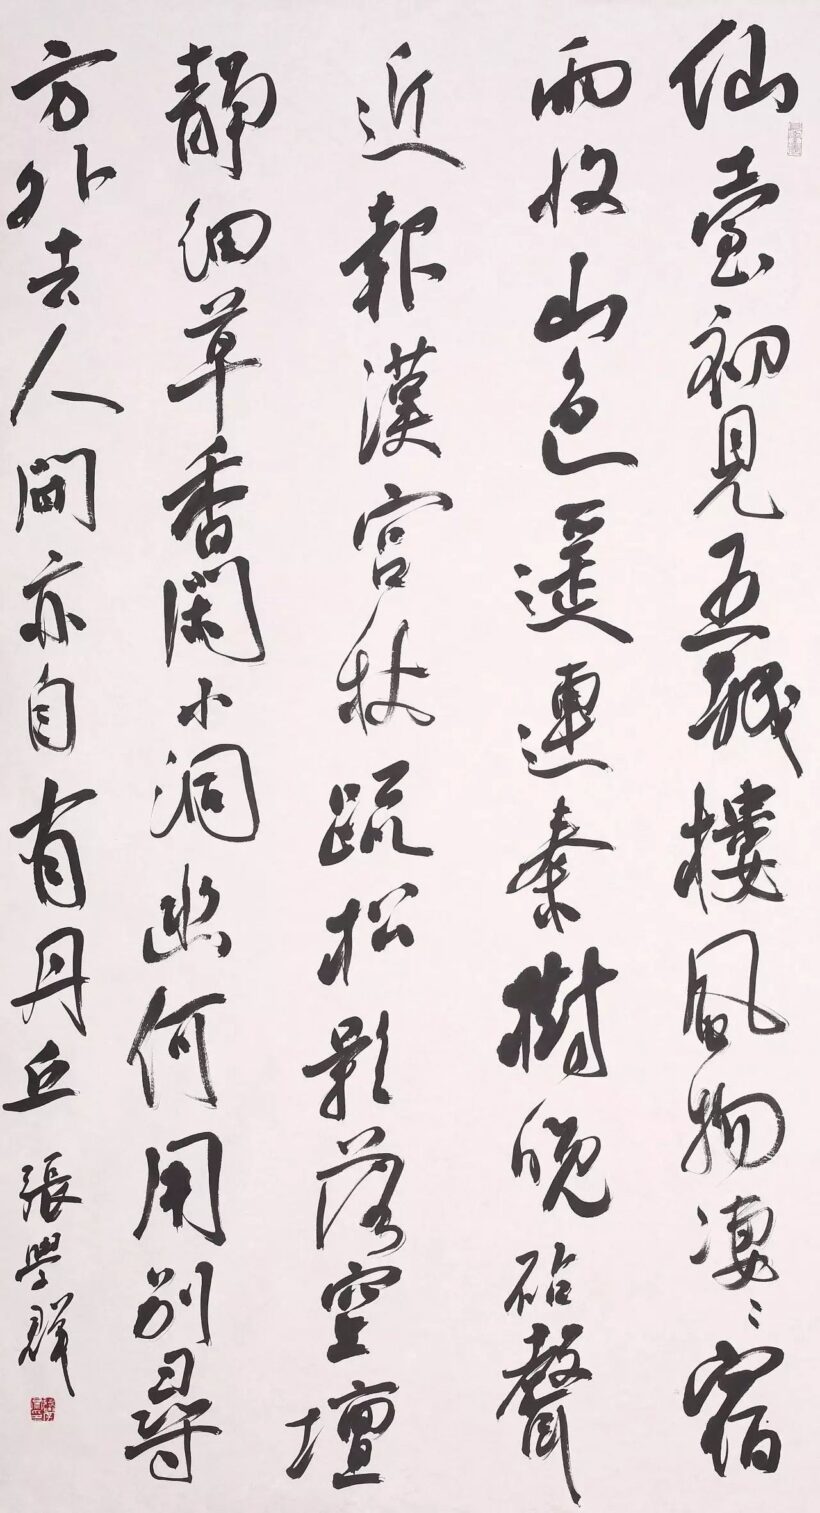 仙臺初見五城樓風物淒〻宿
雨收山色遥連秦樹晚砧聲
近報漢宮秋疏松影落空壇
靜細草香閑小洞幽何用别尋
方外去人間亦自有丹丘
張學群